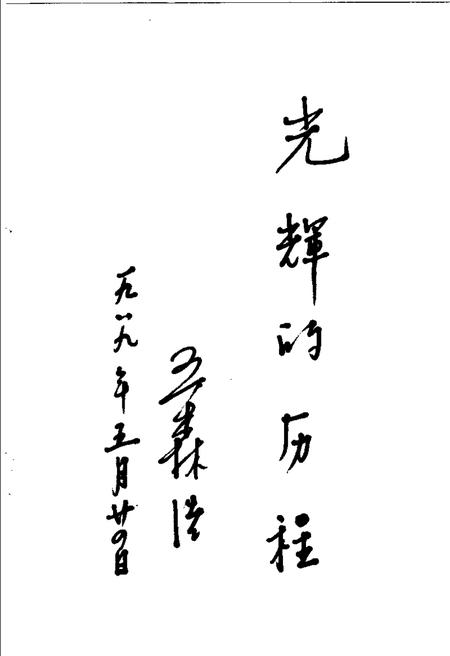 光輝的历程
王森浩
一九八九年五月廿四日